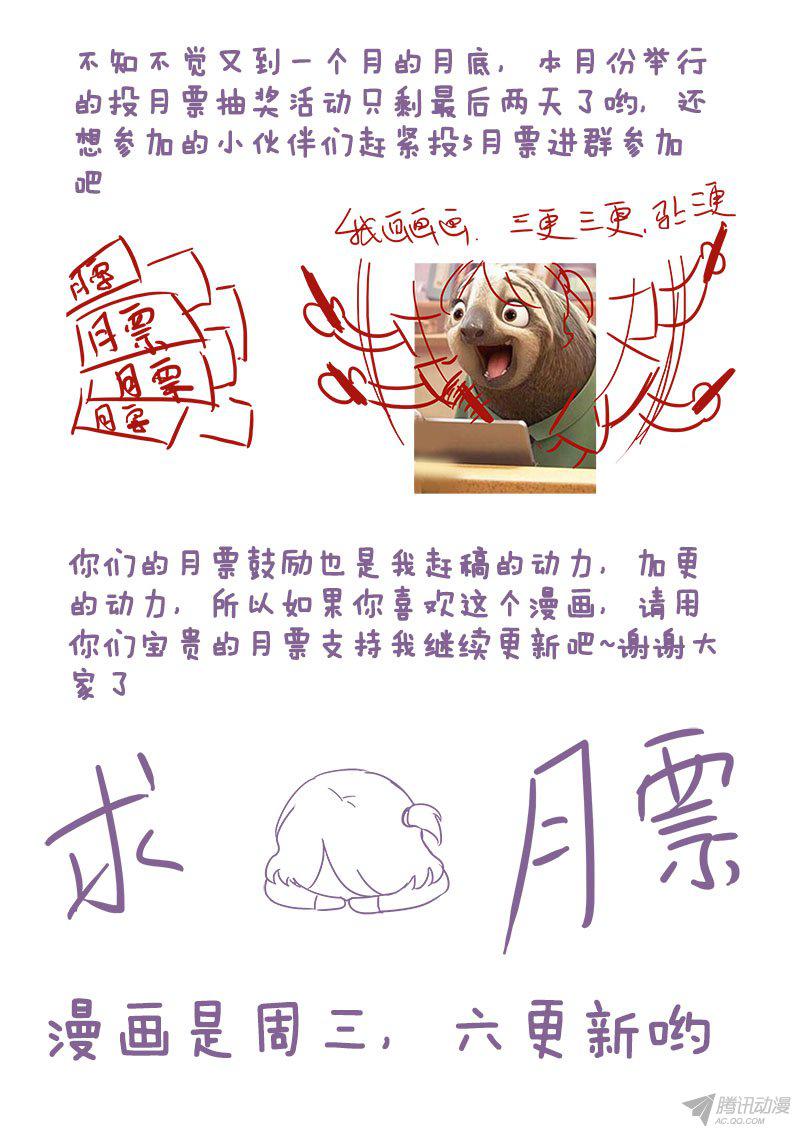 不知不觉又到一个月的月底，本月份举行
的投月票抽奖活动只剩最后两天了哟，还
想参加的小伙伴们赶紧投5月票进群参加
吧
我画画画．三更三更．马上三更
月票
月票
月票
月票
你们的月票鼓励也是我赶稿的动力，加更
的动力，所以如果你喜欢这个漫画，请用
你们宝贵的月票支持我继续更新吧~谢谢大
家了
求月票
漫画是周三，六更新哟
腾讯动漫
AC.QQ.COM